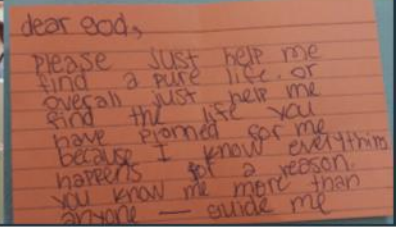 dear god,
please just help me
find a pure life. or
overall just help me
find the life you
have planned for me
because I know everything
happens for a reason.
you know me more than
anyone — guide me